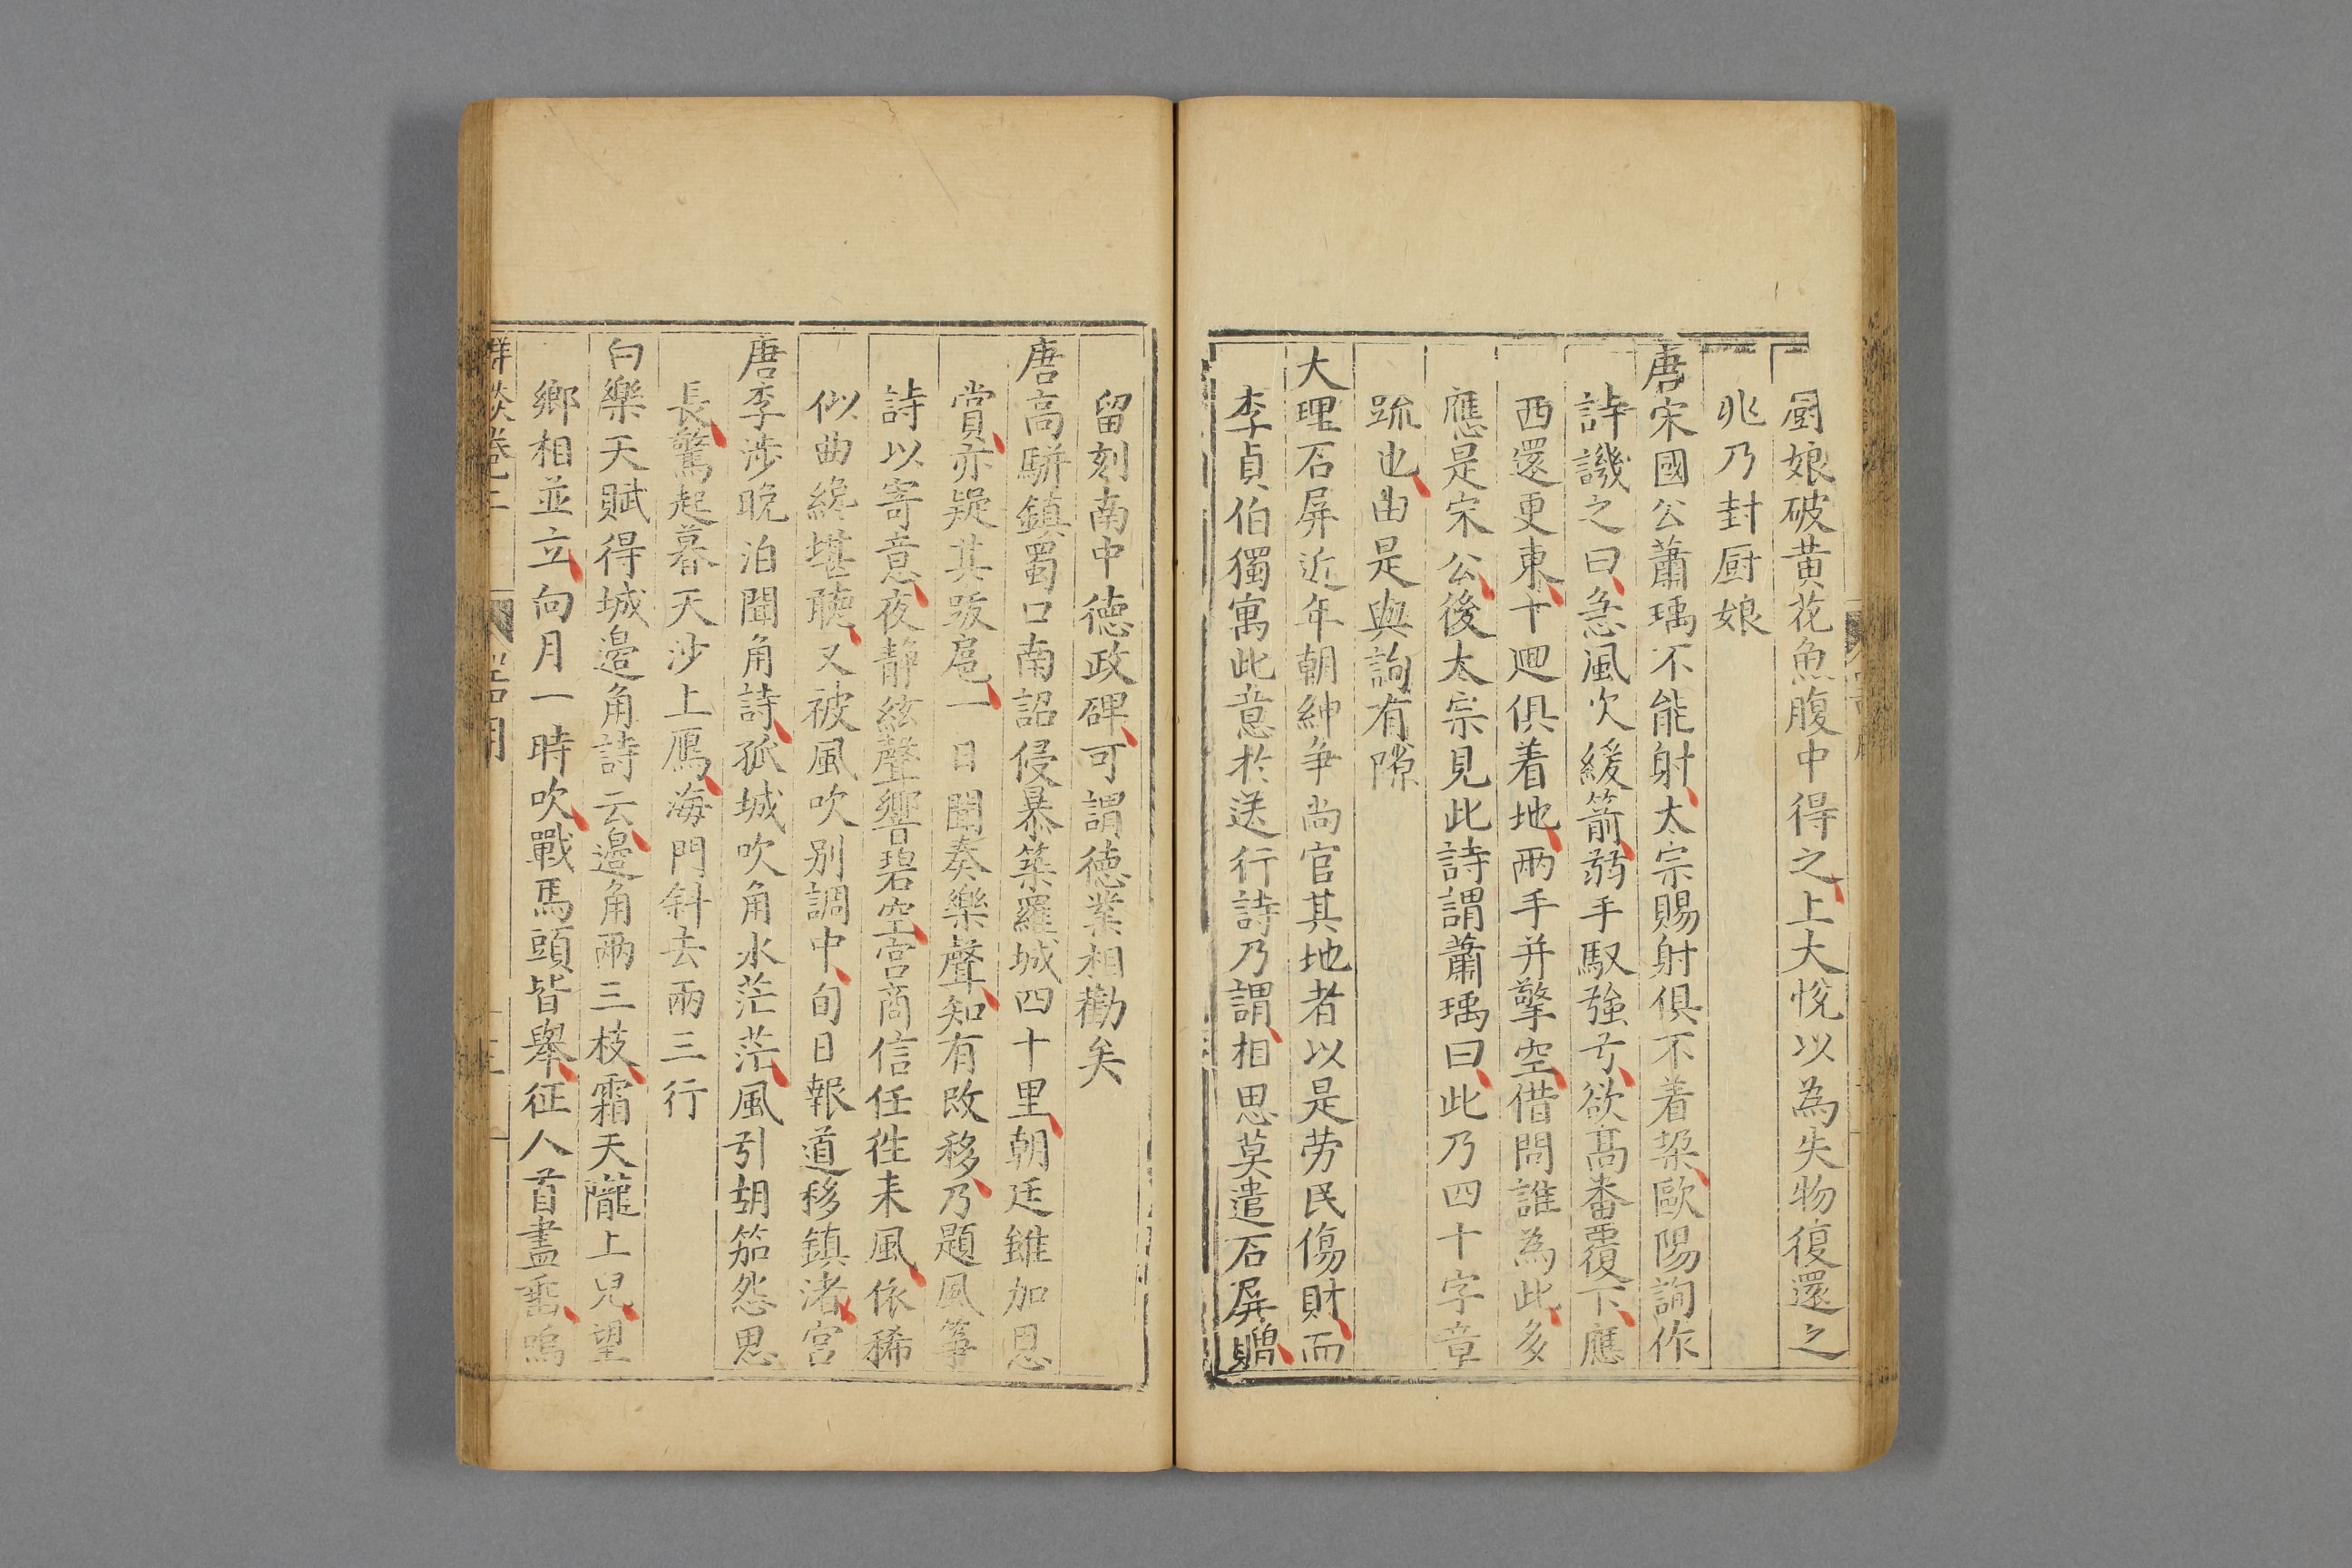 厨娘破黄花魚腹中得之上大悅以為失物復還之
兆乃封厨娘
唐宋國公蕭瑀不能射太宗賜射俱不着垜歐陽詢作
詩譏之曰急風吹緩箭弱手馭強弓欲高番覆下應
西還更東十迴俱着地兩手并擎空借問誰為此多
應是宋公後太宗見此詩謂蕭瑀曰此乃四十字章
䟽也由是與詢有隙
大理石屏近年朝紳爭尚官其地者以是劳民傷財而
李貞伯獨寓此意於送行詩乃謂相思莫遣石屏贈
留刻南中德政碑可謂德業相勸矣
唐高駢鎮蜀口南詔侵暴築羅城四十里朝廷雖加恩
賞亦疑其跋扈一日聞奏樂聲知有改移乃題風筝
詩以寄意夜靜絃聲響碧空宮商信任徃来風依稀
似曲纔堪聽又被風吹别調中旬日報道移鎮渚宫
唐李涉晚泊聞角詩孤城吹角水茫茫風引胡笳怨思
長驚起暮天沙上鴈海門斜去兩三行
白樂天賦得城邉角詩云邉角兩三枝霜天隴上兒望
鄉相並立向月一時吹戰馬頭皆舉征人首盡垂嗚